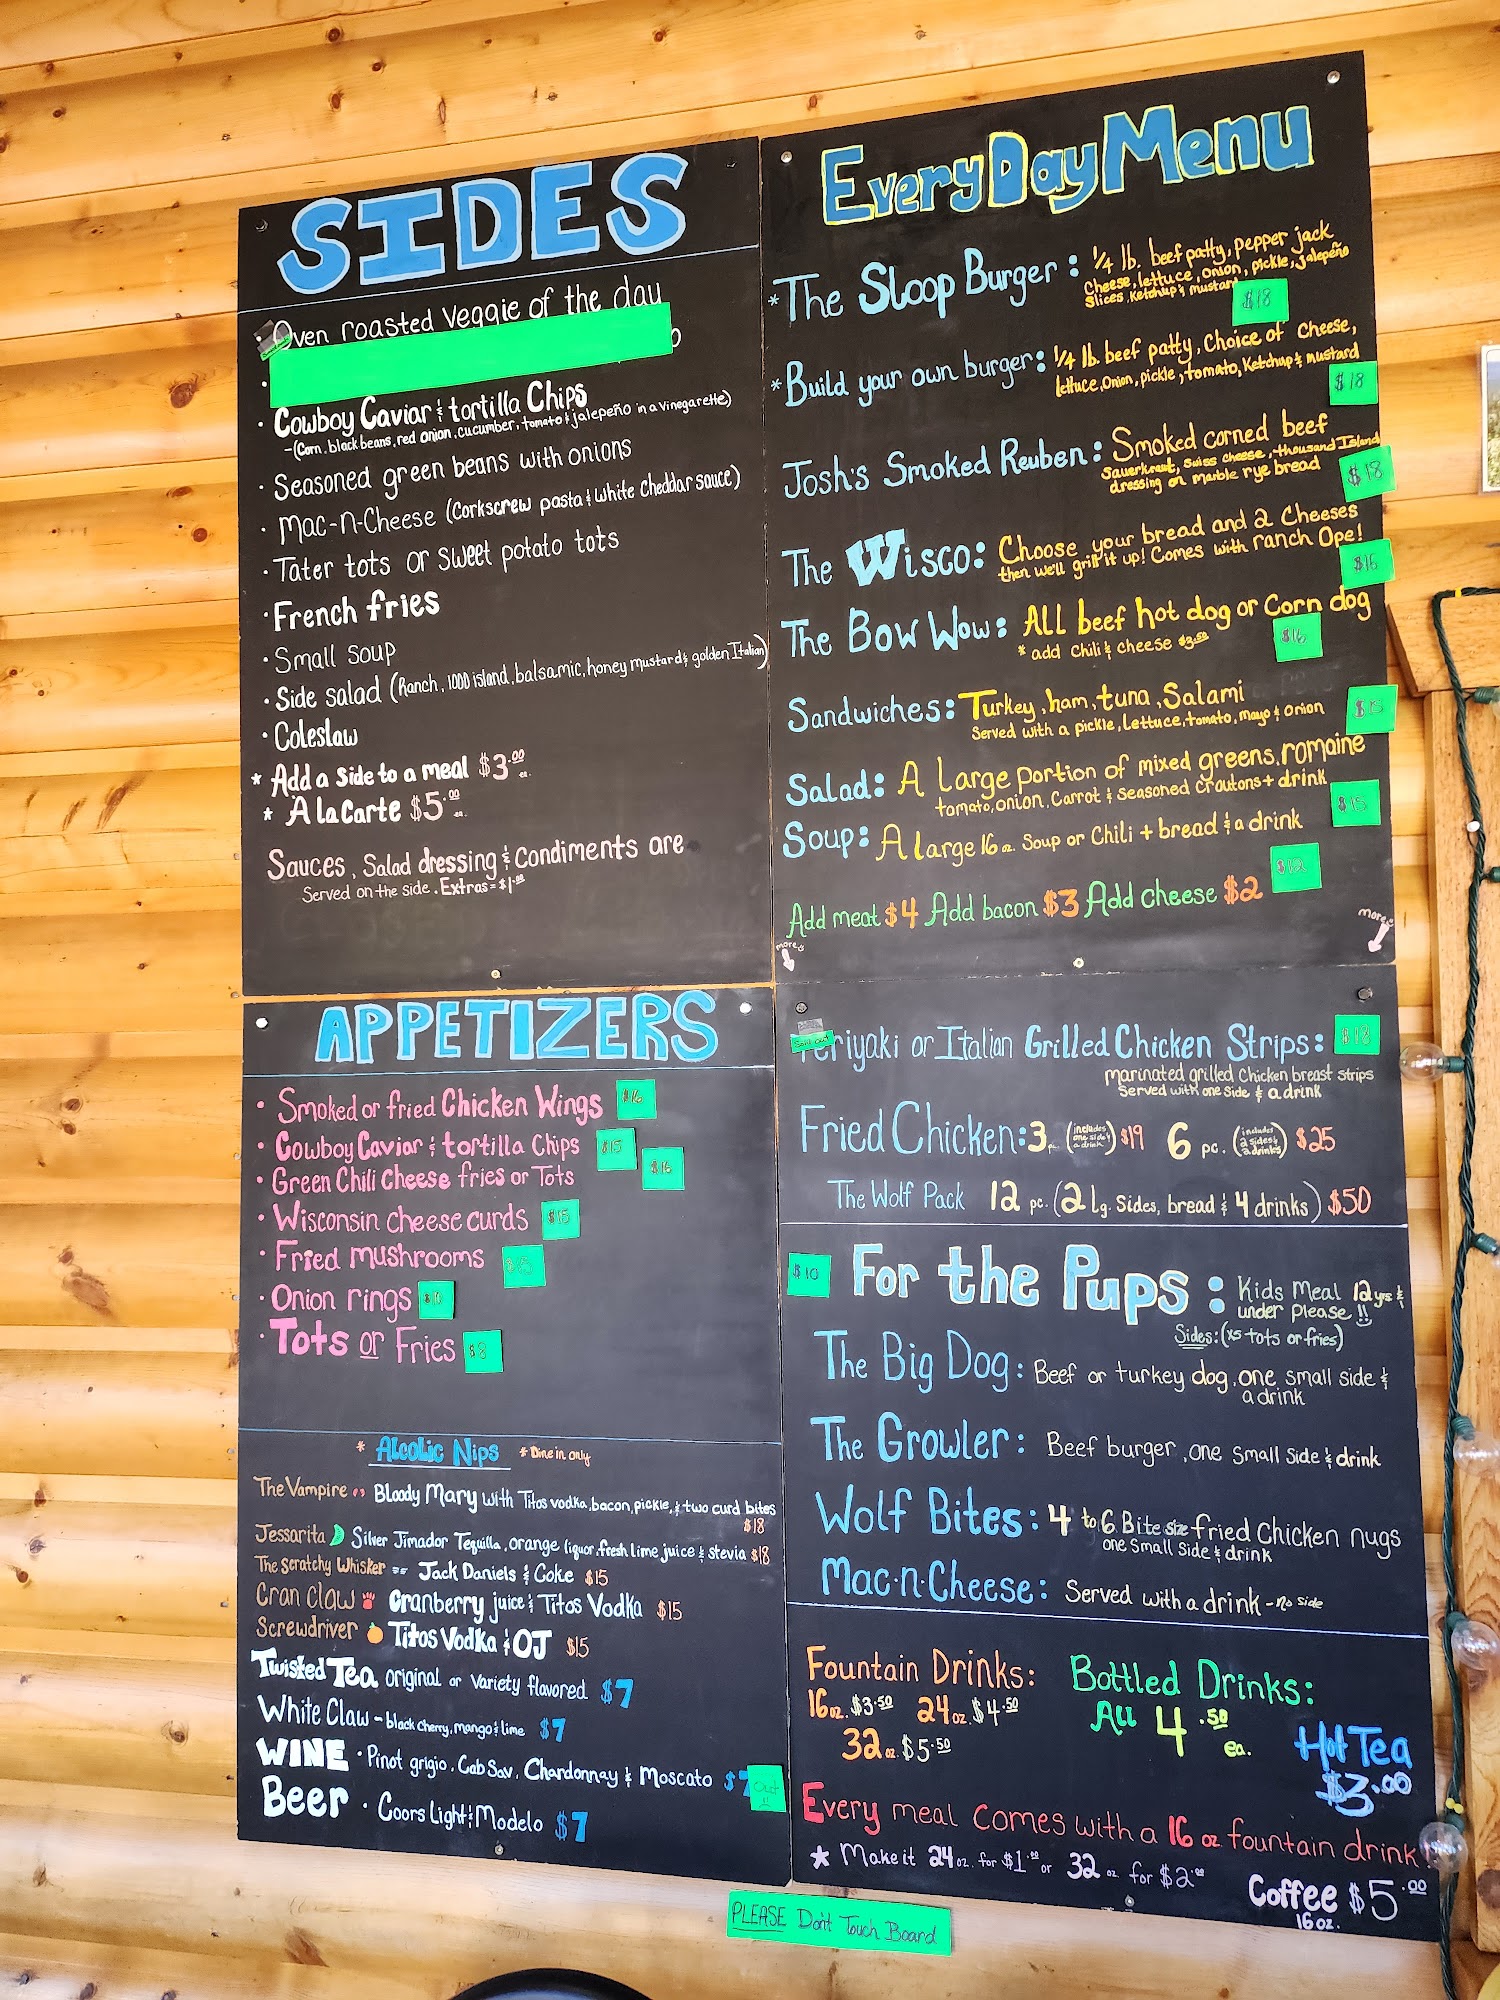 SIDES
Oven roasted Veggie of the day
• Cowboy Caviar & tortilla Chips
-(Corn, black beans, red onion, cucumber, tomato & jalepeño in a vinegarette)
• Seasoned green beans with onions
• Mac-n-Cheese (Corkscrew pasta & White Cheddar sauce)
• Tater tots or sweet potato tots
• French fries
• Small soup
• Side salad (Ranch, 1000 island, balsamic, honey mustard & golden Italian)
• Coleslaw
* Add a side to a meal $3.00 ea.
* A la Carte $5.00 ea.
Sauces, Salad dressing & Condiments are
Served on the side. Extras = $1.00
EveryDay Menu
*The Sloop Burger: 1/4 lb. beef patty, pepper jack
Cheese, lettuce, onion, pickle, jalepeño
Slices, Ketchup & mustard
$18
*Build your own burger: 1/4 lb. beef patty, Choice of Cheese,
lettuce, Onion, pickle, tomato, Ketchup & mustard
$18
Josh's Smoked Reuben: Smoked corned beef
Sauerkraut, Swiss cheese, thousand Island
dressing on marble rye bread
$18
The Wisco: Choose your bread and 2 Cheeses
then we'll grill it up! Comes with ranch Ope!
$16
The Bow Wow: All beef hot dog or Corn dog
* add Chili & Cheese $3.50
$16
Sandwiches: Turkey, ham, tuna, Salami
Served with a pickle, Lettuce, tomato, mayo & onion
$15
Salad: A Large portion of mixed greens, romaine
tomato, onion, Carrot & Seasoned Croutons + drink
$15
Soup: A large 16 oz. Soup or Chili + bread & a drink
Add meat $4 Add bacon $3 Add cheese $2
more
more
APPETIZERS
• Smoked or fried Chicken Wings $16
• Cowboy Caviar & tortilla Chips $15
• Green Chili Cheese fries or Tots $16
• Wisconsin cheese curds $15
• Fried mushrooms
• Onion rings
• Tots or Fries $8
* Alcolic Nips * Dine in only
The Vampire Bloody Mary with Titos vodka, bacon, pickle, & two curd bites
$18
Jessarita Silver Jimador Tequilla, orange liquor, fresh lime juice & stevia $18
The Scratchy Whisker == Jack Daniels & Coke $15
Cran Claw Cranberry juice & Titos Vodka $15
Screwdriver Titos Vodka & OJ $15
Twisted Tea original or Variety flavored $7
White Claw - black cherry, mango & lime $7
WINE • Pinot grigio, Cab Sav, Chardonnay & Moscato $7
Out
Beer • Coors Light & Modelo $7
Sold out
Teriyaki or Italian Grilled Chicken Strips: $18
marinated grilled Chicken breast strips
Served with one side & a drink
Fried Chicken: 3 pc. (includes one side & a drink) $19 6 pc. (includes 2 sides & 2 drinks) $25
The Wolf Pack 12 pc. (2 lg. Sides, bread & 4 drinks) $50
$10
For the Pups: Kids Meal 12 yrs &
under please!!
Sides: (xs tots or fries)
The Big Dog: Beef or turkey dog, one small side &
a drink
The Growler: Beef burger, one small side & drink
Wolf Bites: 4 to 6 Bite size fried Chicken nugs
one small side & drink
Mac-n-Cheese: Served with a drink - no side
Fountain Drinks:
16oz. $3.50 24oz. $4.50
32oz. $5.50
Bottled Drinks:
All 4.50 ea.
Hot Tea
$3.00
Every meal comes with a 16 oz fountain drink!
* Make it 24 oz. for $1.00 or 32 oz for $2.00
Coffee $5.00
16 oz.
PLEASE Don't Touch Board